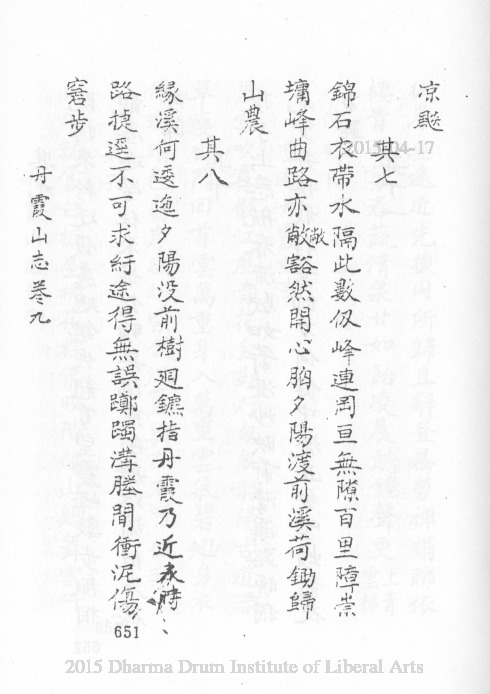 凉颸
其七
錦石衣帶水隔此數仞峰連岡亘無隙百里障崇
墉峰曲路亦敞豁然開心胸夕陽渡前溪荷鋤歸
山農
其八
緣溪何逶迤夕陽没前樹廻鑣指丹霞乃近
路捷逕不可求紆途得無誤躑躅溝塍間衝泥傷
窘步
丹霞山志卷九
651
2015-04-17
2015 Dharma Drum Institute of Liberal Arts